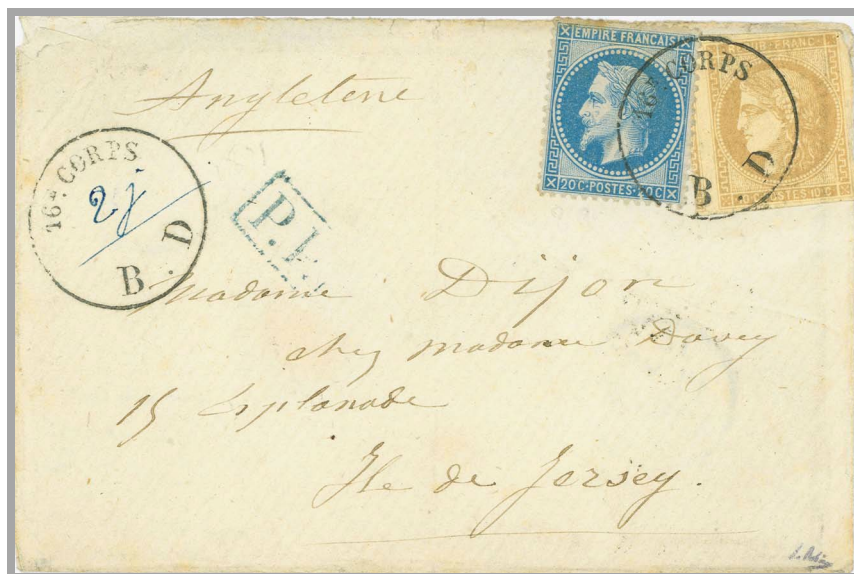 Angleterre
EMPIRE FRANÇAIS
20C·POSTES·20C
REPUB·FRANC
10C
16e CORPS
B. D
16e CORPS
2j
B. D
P.
Madame Dijon
chez madame Davey
15 Esplanade
Ile de Jersey.